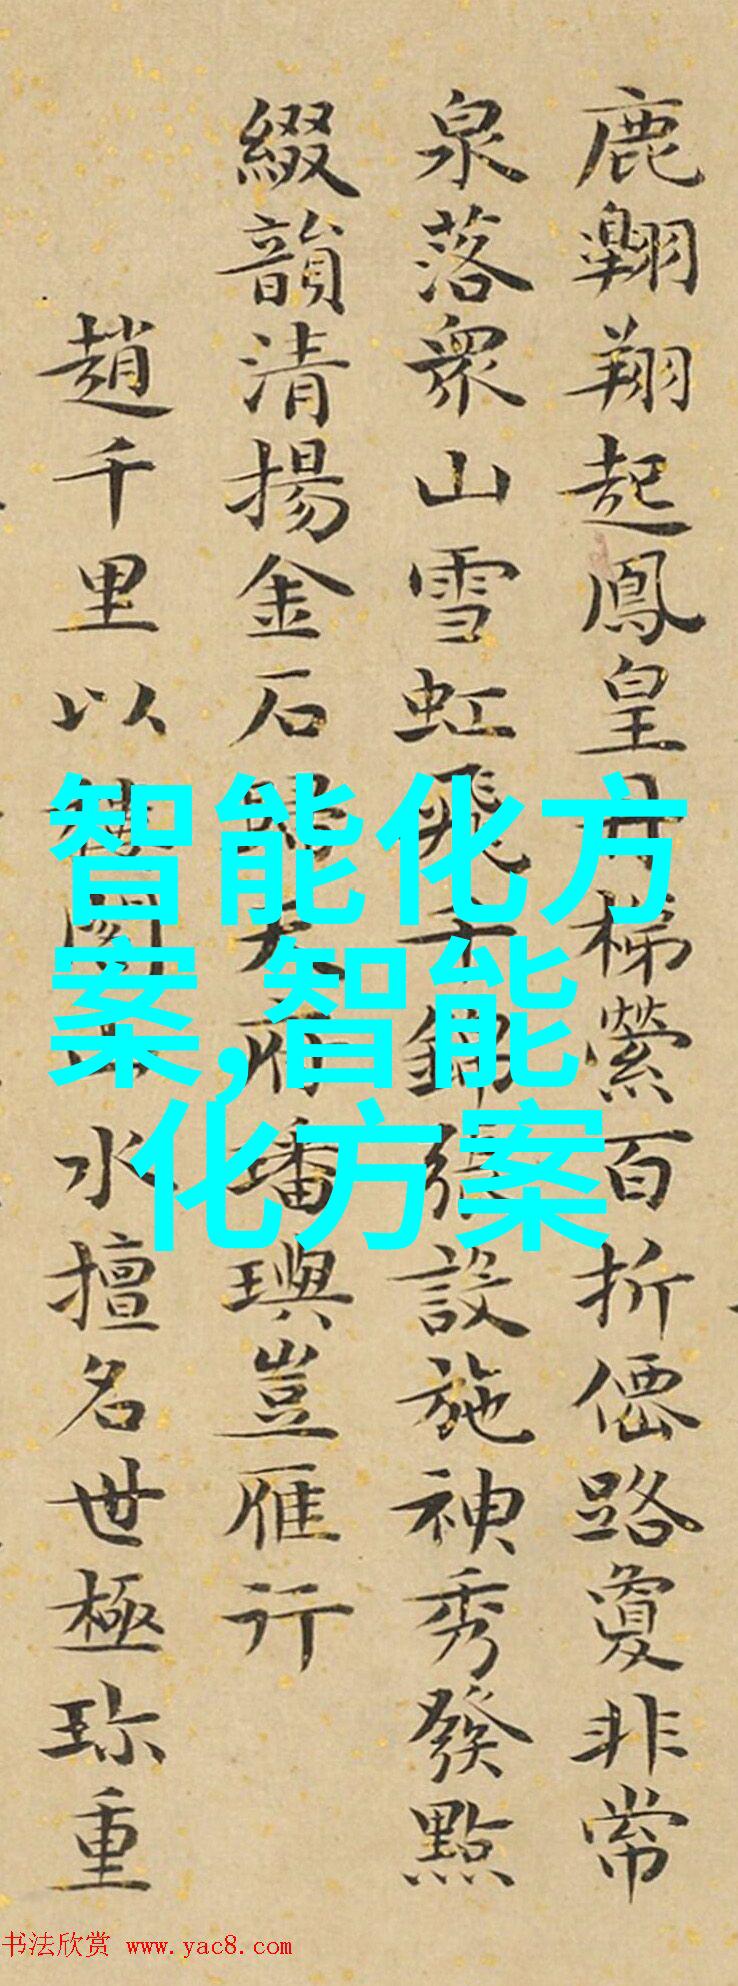 鹿翱翔起鳳皇丹梯縈百折僊路夐非常
泉落衆山雪虹飛千錦張設施神秀發點
綴韻清揚金石天府璠璵豈雁行
趙千里以樓閣山水擅名世極珎重
智能化方
案,智能
化方案
书法欣赏 www.yac8.com